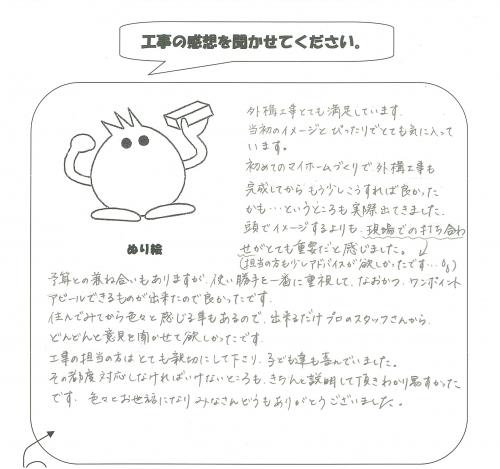 工事の感想を聞かせてください。
外構工事とても満足しています。
当初のイメージとぴったりでとても気に入って
います。
初めてのマイホームづくりで、外構工事も
完成してから もう少しこうすれば良かった
かも…というところも実際出てきました。
頭でイメージするよりも、現場での打ち合わ
せがとても重要だと感じました。
(担当の方も少しアドバイスが欲しかったです…
ぬり絵
予算との兼ね合いもありますが、使い勝手を一番に重視して、なおかつ、ワンポイント
アピールできるものが出来たので良かったです。
住んでみてから色々と感じる事もあるので、出来るだけプロのスタッフさんから、
どんどんと意見を聞かせて欲しかったです。
工事の担当の方はとても親切にして下さり、子ども達も喜んでいました。
その都度対応しなければいけないところも、きちんと説明して頂きわかり易すかった
です。色々とお世話になり みなさんどうもありがとうございました。